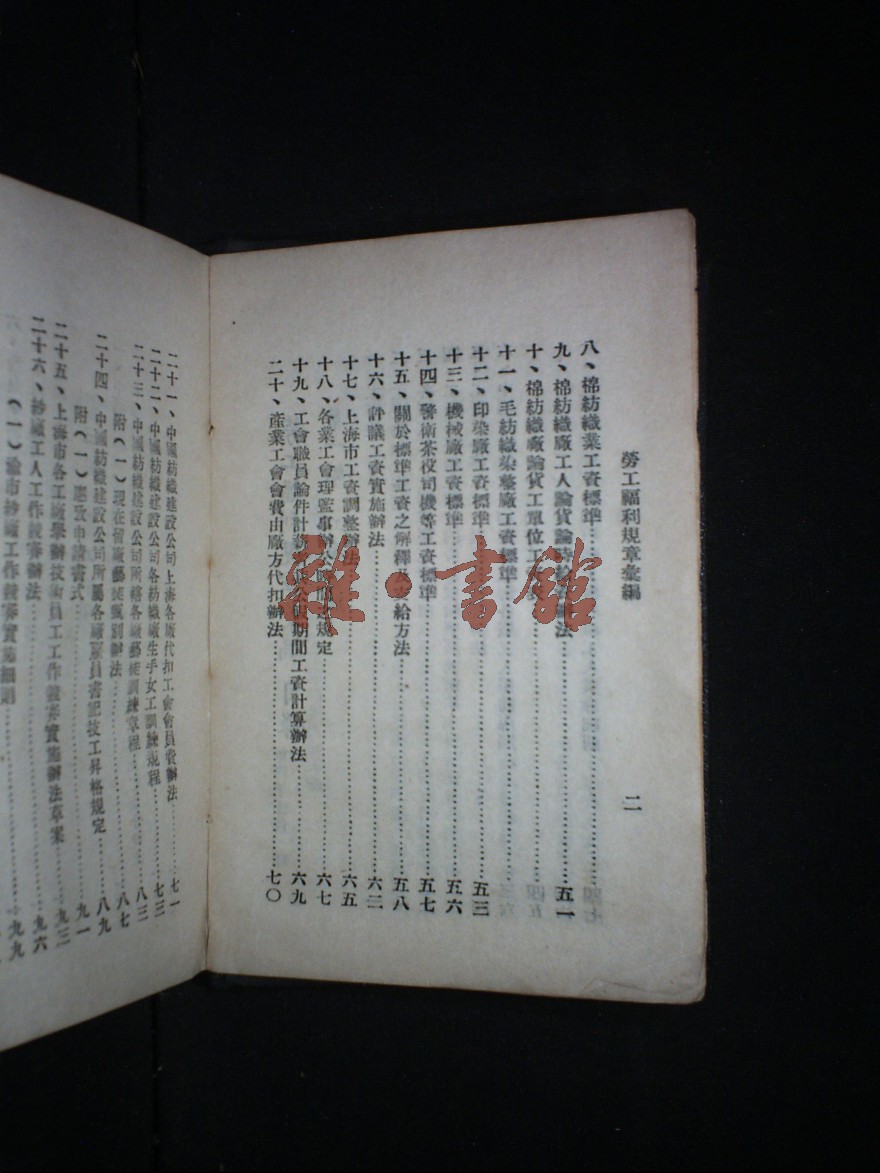 勞工福利規章彙編
二
八、棉紡織業工資標準
九、棉紡織廠工人論貨論時 法 五一
十、棉紡織廠論貨工單位工
十一、毛紡織染整廠工資標準
十二、印染廠工資標準 五三
十三、機械廠工資標準 五六
十四、警衛茶役司機等工資標準 五七
十五、關於標準工資之解釋及 給方法 五八
十六、評議工資實施辦法 六二
十七、上海市工資調整辦法 六五
十八、各業工會理監事辦公時間 規定 六七
十九、工會職員論件計資 公假期間工資計算辦法 六九
二十、產業工會會費由廠方代扣辦法 七〇
二十一、中國紡織建設公司上海各廠代扣工會會員費辦法 七一
二十二、中國紡織建設公司各紡織廠生手女工訓練規程 七三
二十三、中國紡織建設公司所轄各廠藝徒訓練章程 八三
附(一)現在留廠藝徒甄別辦法 八七
二十四、中國紡織建設公司所屬各廠雇員書記技工昇格規定 八九
附(一)申請書式 九一
二十五、上海市各工廠舉辦技術員工工作競賽實施辦法草案 九三
二十六、紗廠工人工作競賽辦法 九六
(一)滬市紗廠工作競賽實施細則 九九
雜·書館